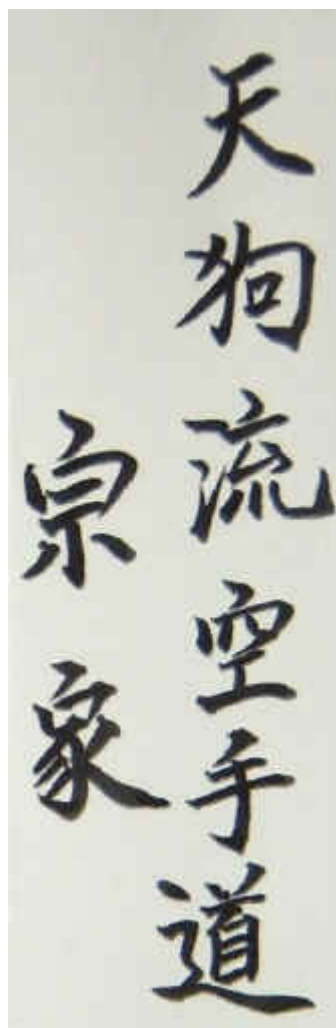 天狗流空手道
宗家